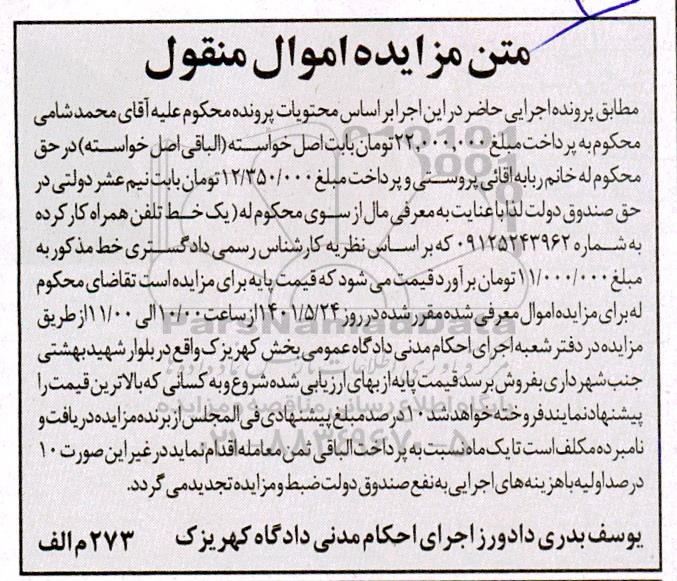 متن مزایده اموال منقول
مطابق پرونده اجرایی حاضر در این اجرا بر اساس محتویات پرونده محکوم علیه آقای محمد شامی
محکوم به پرداخت مبلغ ۲۲,۰۰۰,۰۰۰ تومان بابت اصل خواسته (الباقی اصل خواسته) در حق
محکوم له خانم ربابه اقائی پروستی و پرداخت مبلغ ۱۲/۳۵۰/۰۰۰ تومان بابت نیم عشر دولتی در
حق صندوق دولت لذا با عنایت به معرفی مال از سوی محکوم له (یک خط تلفن همراه کار کرده
به شماره ۰۹۱۲۵۲۴۳۹۶۲ که بر اساس نظریه کارشناس رسمی دادگستری خط مذکور به
مبلغ ۱۱/۰۰۰/۰۰۰ تومان برآورد قیمت می شود که قیمت پایه برای مزایده است تقاضای محکوم
له برای مزایده اموال معرفی شده مقرر شده در روز ۱۴۰۱/۵/۲۴ از ساعت ۱۰/۰۰ الی ۱۱/۰۰ از طریق
مزایده در دفتر شعبه اجرای احکام مدنی دادگاه عمومی بخش کهریزک واقع در بلوار شهید بهشتی
جنب شهرداری بفروش برسد قیمت پایه از بهای ارزیابی شده شروع و به کسانی که بالاترین قیمت را
پیشنهاد نمایند فروخته خواهد شد ۱۰ درصد مبلغ پیشنهادی فی المجلس از برنده مزایده دریافت و
نامبرده مکلف است تا یک ماه نسبت به پرداخت الباقی ثمن معامله اقدام نماید در غیر این صورت ۱۰
درصد اولیه با هزینه های اجرایی به نفع صندوق دولت ضبط و مزایده تجدید می گردد.
یوسف بدری دادورز اجرای احکام مدنی دادگاه کهریزک ۲۷۳ م الف
ParsNamadData
پایگاه اطلاع رسانی مناقصه و مزایده
۰۲۱-۸۸۳۴۹۶۷۰-۵